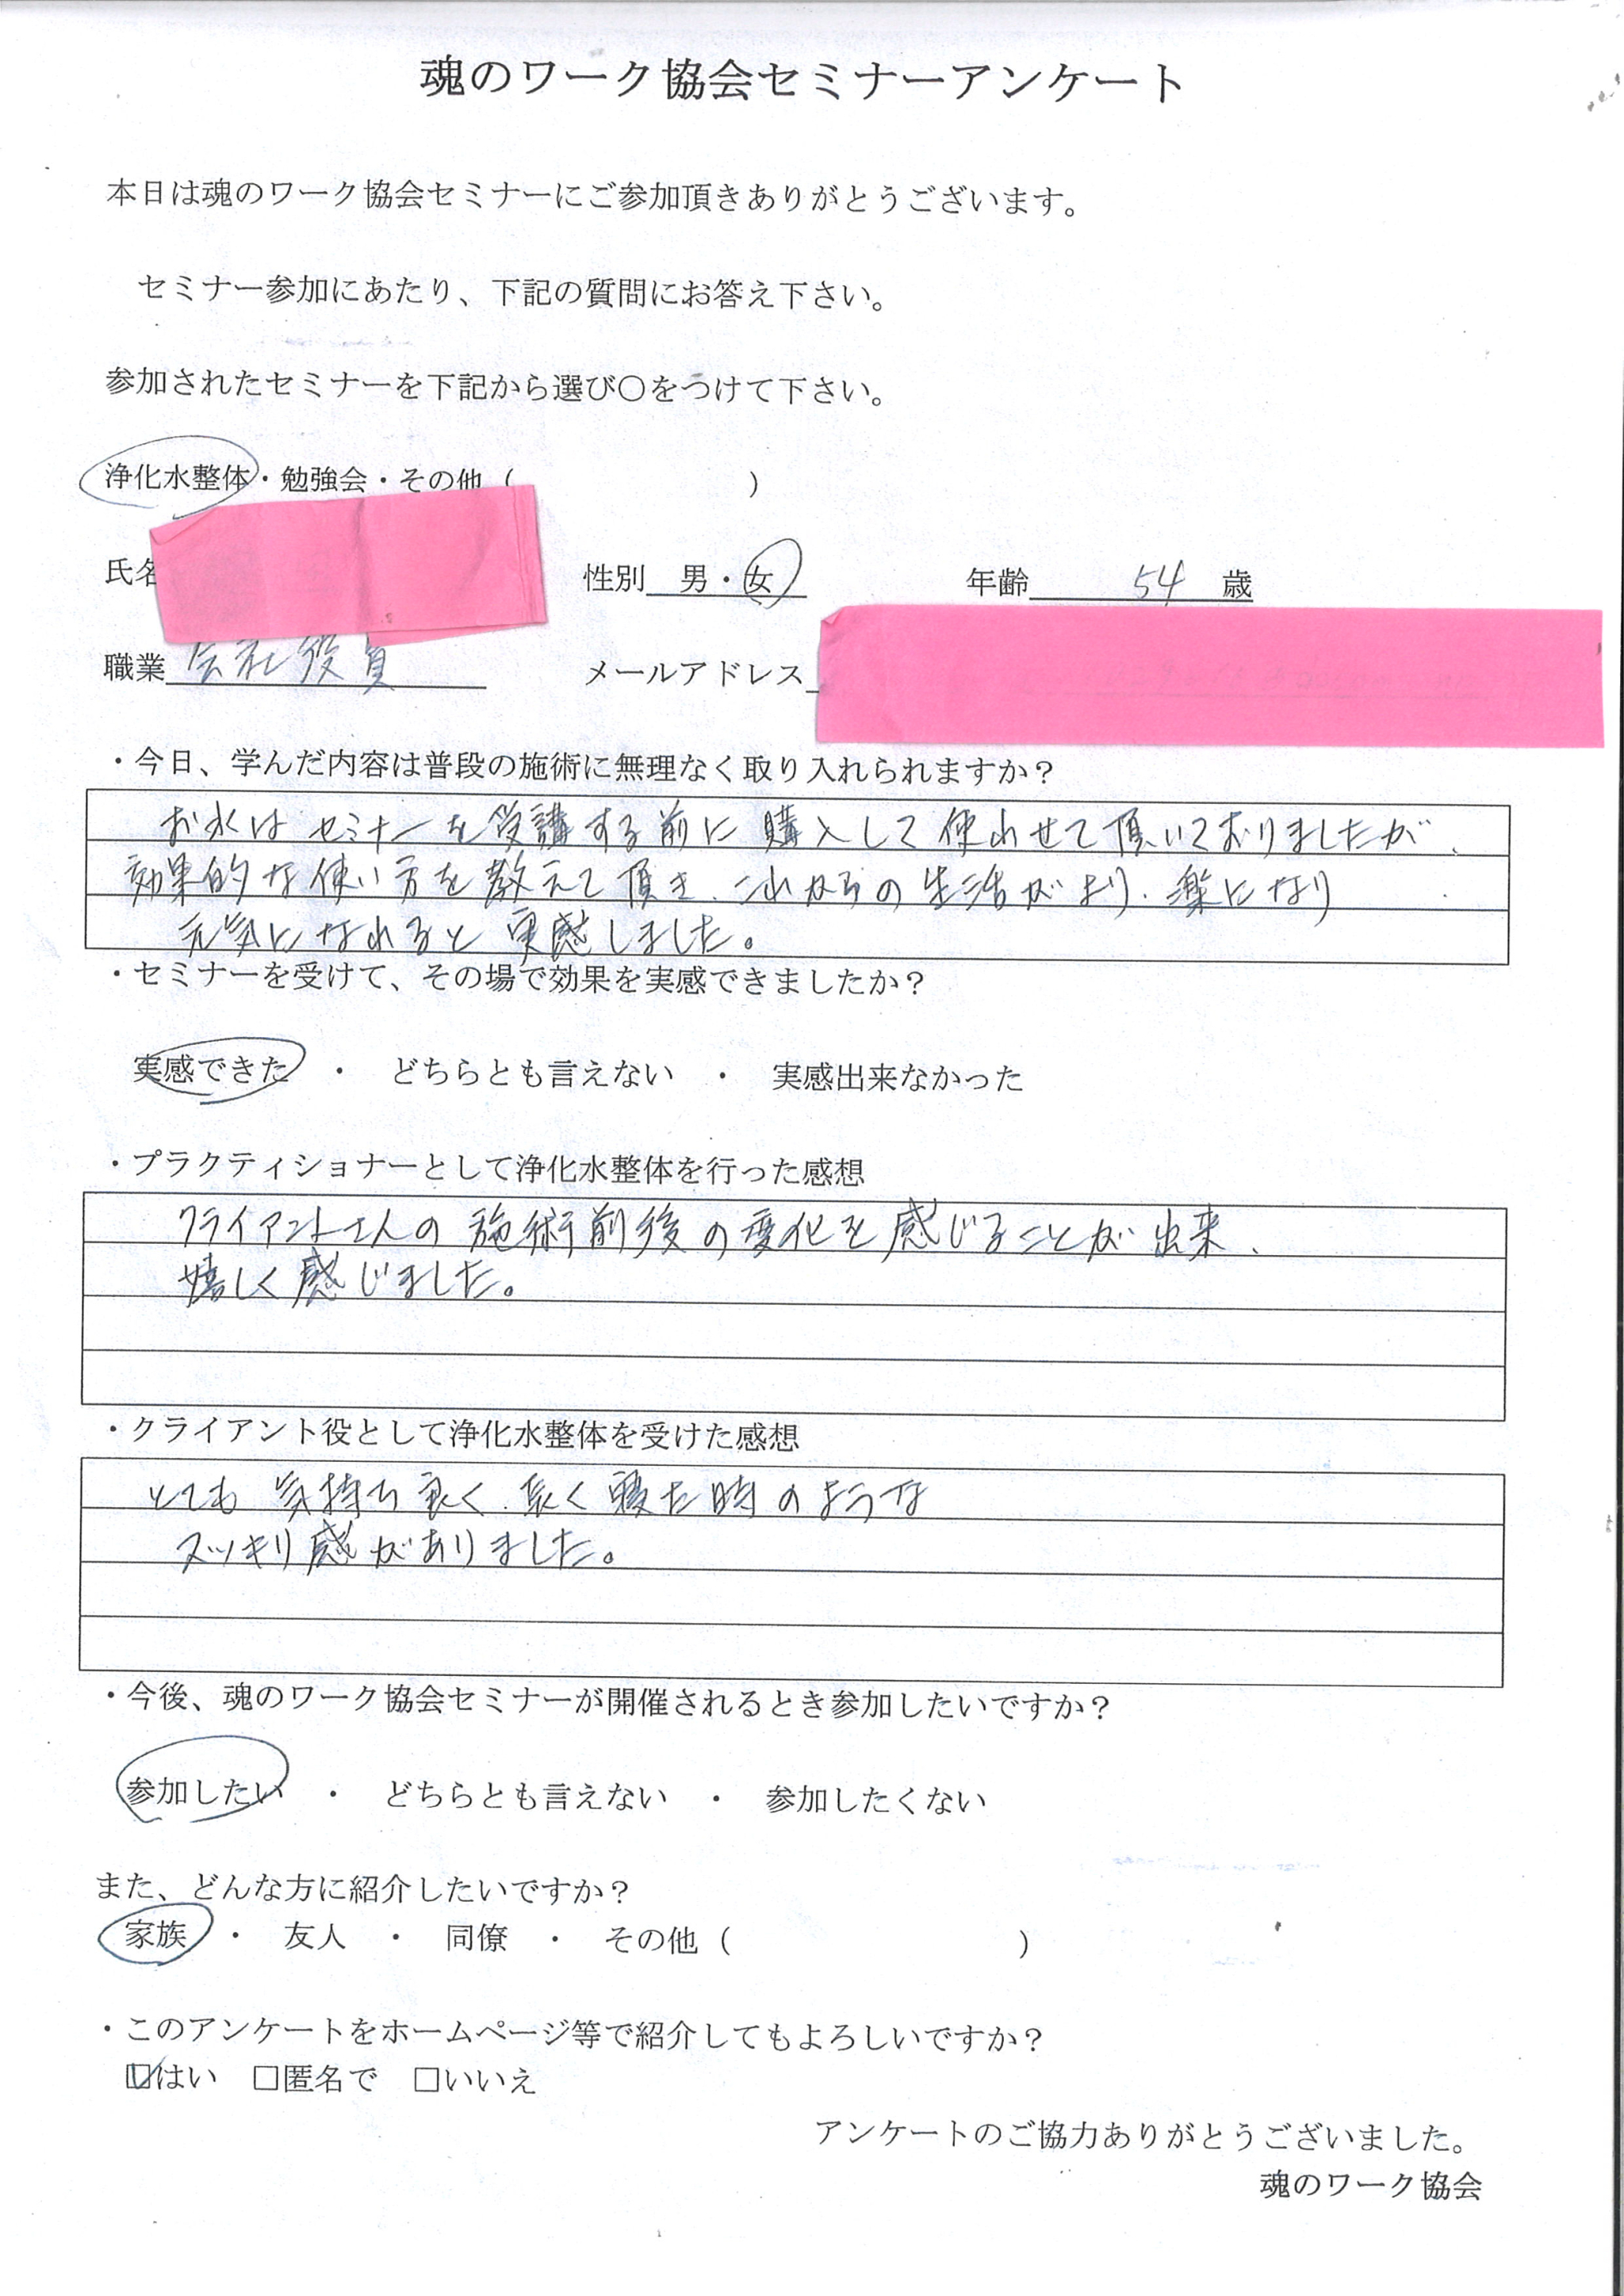 魂のワーク協会セミナーアンケート
本日は魂のワーク協会セミナーにご参加頂きありがとうございます。
セミナー参加にあたり、下記の質問にお答え下さい。
参加されたセミナーを下記から選び〇をつけて下さい。
浄化水整体・勉強会・その他（　　　　　　　　）
氏名　性別　男・女　年齢　54　歳
職業　会社役員　メールアドレス
・今日、学んだ内容は普段の施術に無理なく取り入れられますか？
お水はセミナーを受講する前に購入して使わせて頂いておりましたが、
効果的な使い方を教えて頂き、これからの生活がより、楽になり
元気になれると実感しました。
・セミナーを受けて、その場で効果を実感できましたか？
実感できた　・　どちらとも言えない　・　実感出来なかった
・プラクティショナーとして浄化水整体を行った感想
クライアントさんの施術前後の変化を感じることが出来、
嬉しく感じました。
・クライアント役として浄化水整体を受けた感想
とても気持ち良く、良く寝た時のような
スッキリ感がありました。
・今後、魂のワーク協会セミナーが開催されるとき参加したいですか？
参加したい　・　どちらとも言えない　・　参加したくない
また、どんな方に紹介したいですか？
家族　・　友人　・　同僚　・　その他（　　　　　　　　　）
・このアンケートをホームページ等で紹介してもよろしいですか？
☑はい　□匿名で　□いいえ
アンケートのご協力ありがとうございました。
魂のワーク協会